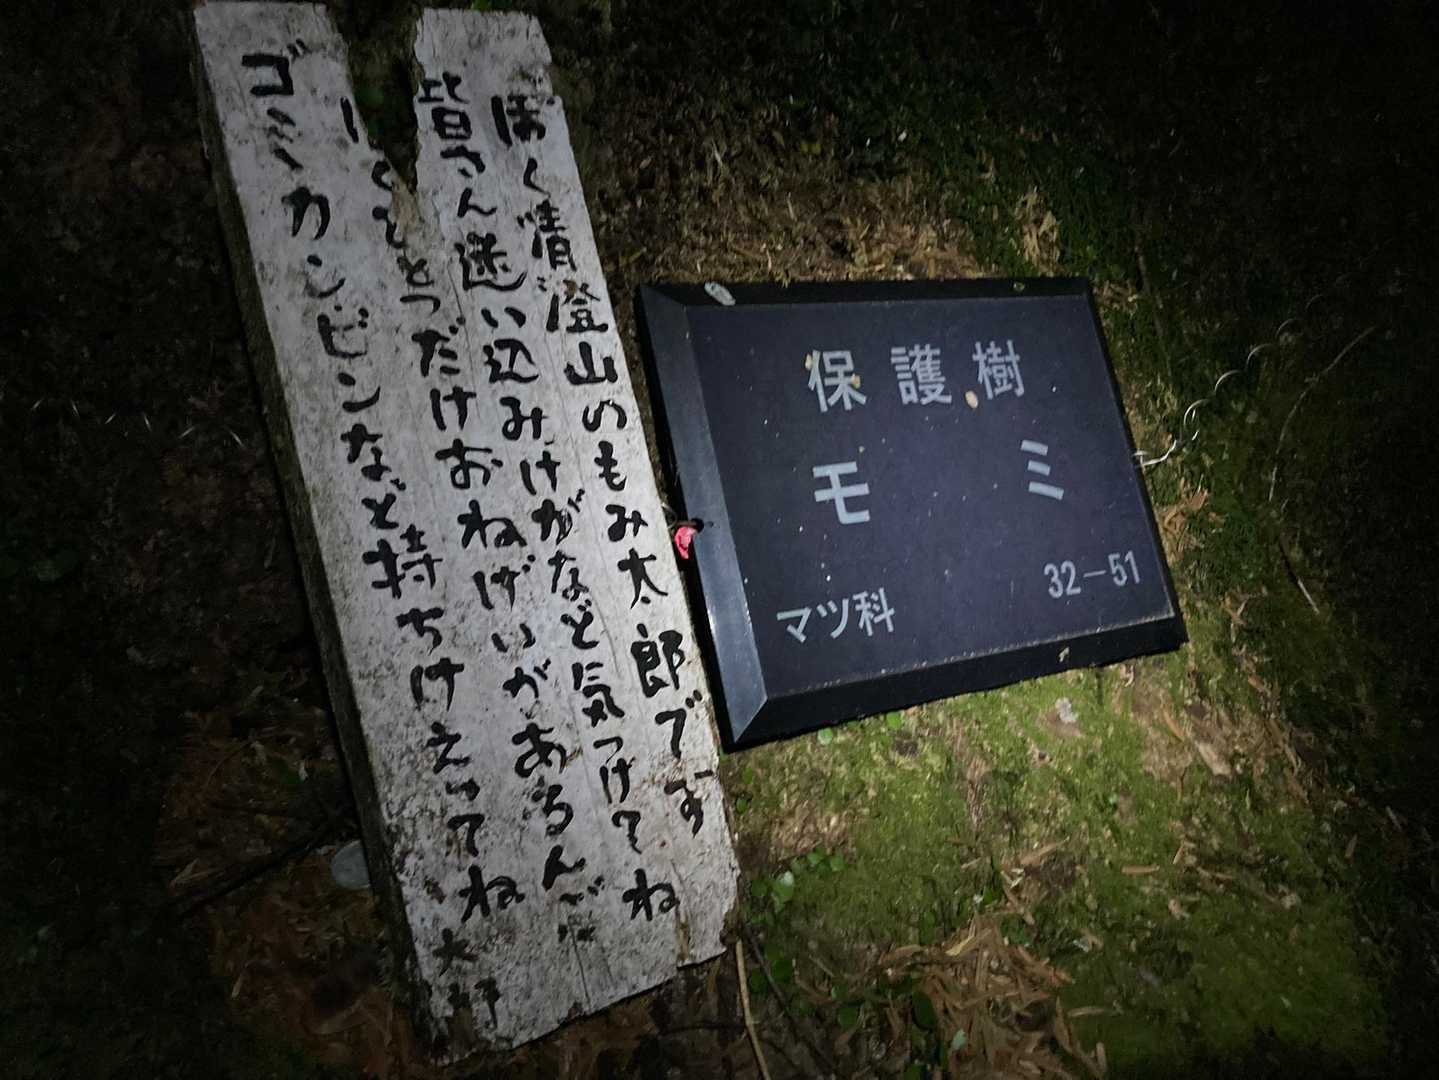 ぼく清澄山のもみ太郎です
皆さん迷い込みけがなど気つけてね
ぼくひとつだけおねげいがあるんだ
ゴミカンビンなど持ちけえってね
太郎
保護樹
モミ
マツ科
32－51